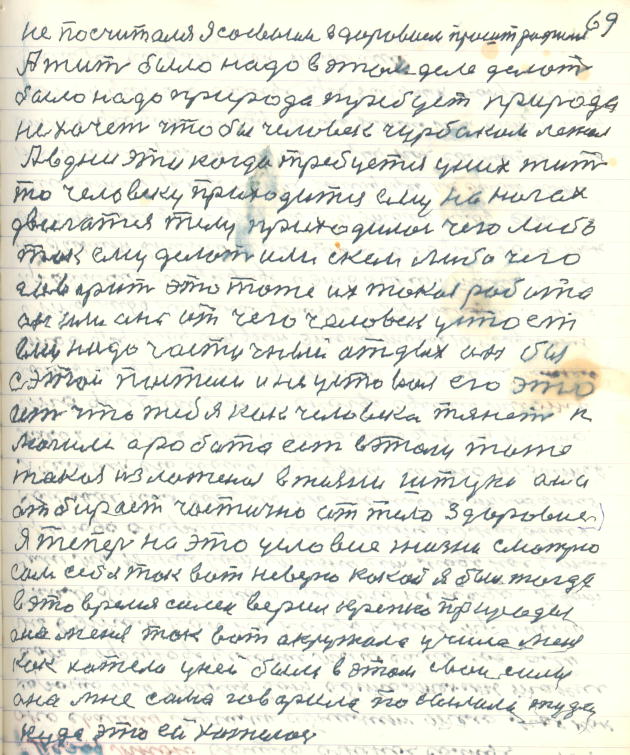 69
не посчитался Я со своим здоровием проштрафился
А жит было надо в этом деле делот
было надо природа требует природа
не хочет что бы человек чурбаком лежал
А в дни эти когда требуется у них жит
то человеку приходится ему на ногах
двигатся телу приходилос чего либо
так ему делот или скем либо чего
гаварит это тоже их такая работа
он или она от чего человек устает
ему надо частичный отдых он бы
с этой постели и не уставал его это
ит что тебя как человека тянет к
могили а работа ест в этом тоже
такая изложеная в жизни штука она
отбирает частично от тела Здоровие
Я тепер на это условие жизни смотрю
сам себя так вот неверно какой я был тогда
в это время силен верил крепко природи
она меня так вот окружала учила меня
как хотела у ней были в этом свои силы
она мне сама говорила посылала туда
куда это ей хотелос